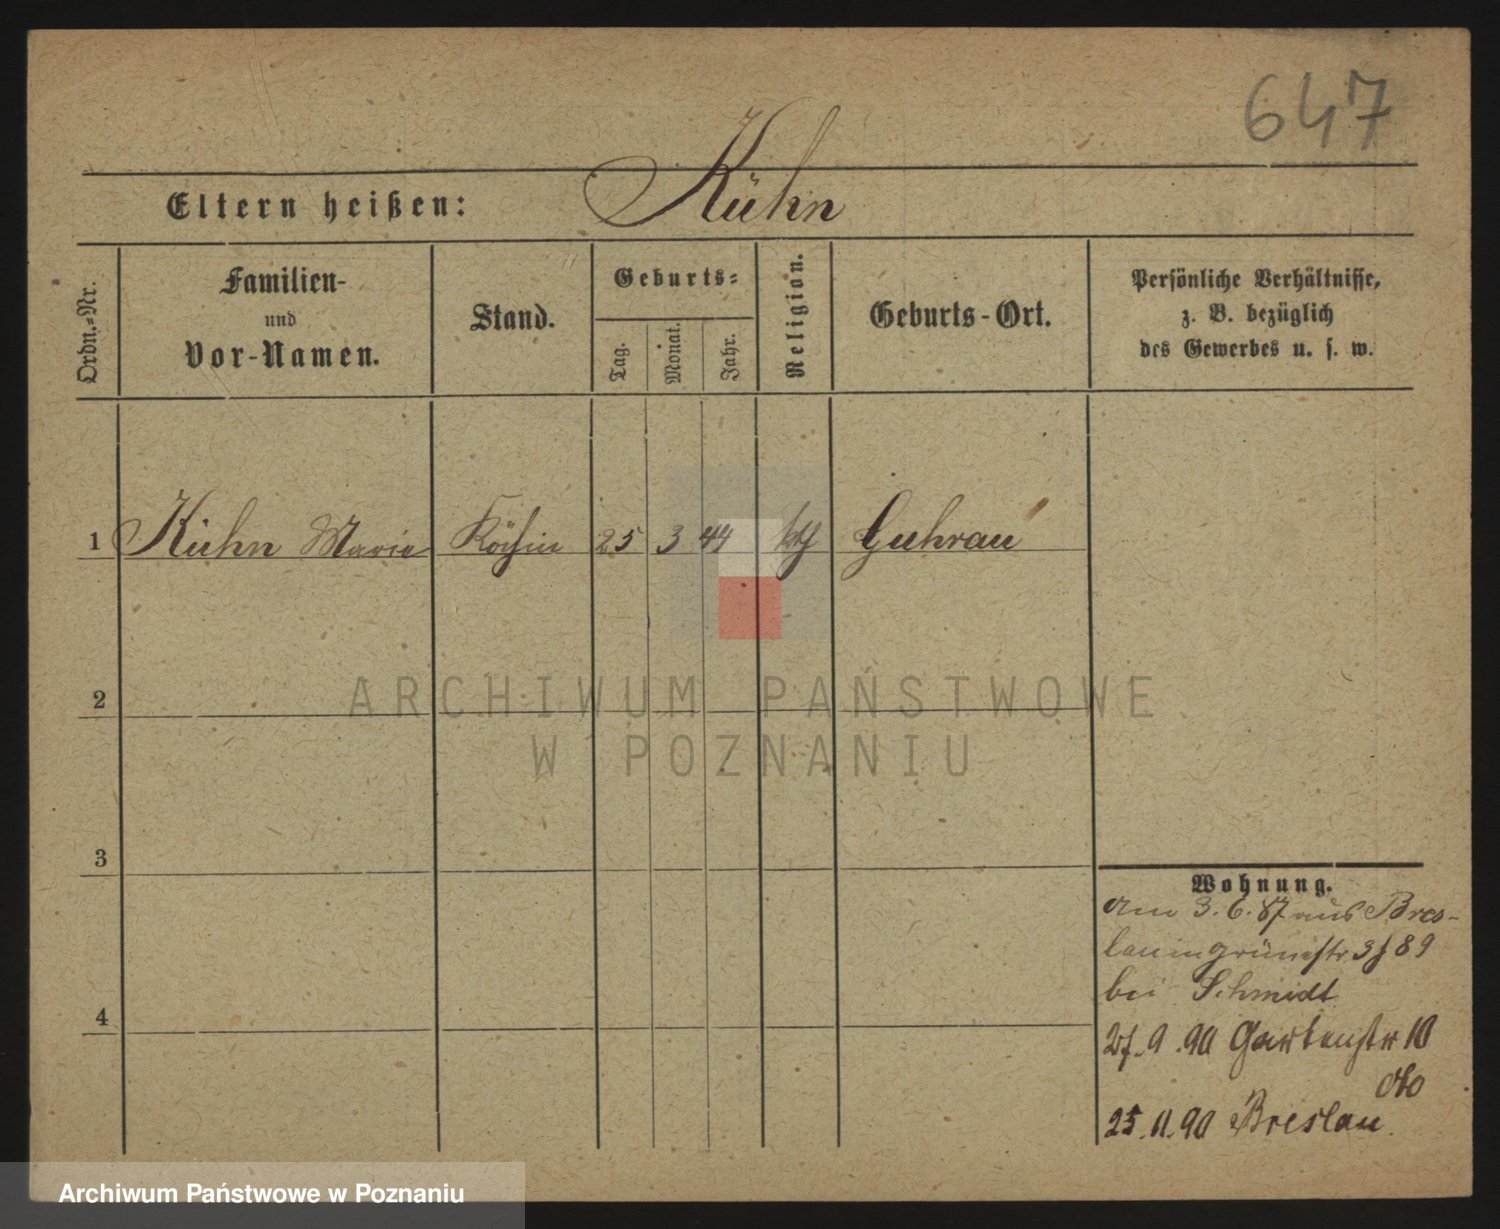 647
Kühn
Eltern heißen:
Ordn.-Nr.
Familien-
und
Vor-Namen.
Stand.
Geburts-
Tag.
Monat.
Jahr.
Religion.
Geburts-Ort.
Persönliche Verhältnisse,
z. B. bezüglich
des Gewerbes u. s. w.
1 Kühn Marie Köchin 25 3 44 Guhrau
2
ARCHIWUM PAŃSTWOWE
W POZNANIU
3
4
Wohnung.
Am 3. 6. 87 aus Bres-
lau in Grünestr 3
bei Schmidt
9. 90 Gartenstr 10
25. 11. 90 Breslau.
Archiwum Państwowe w Poznaniu